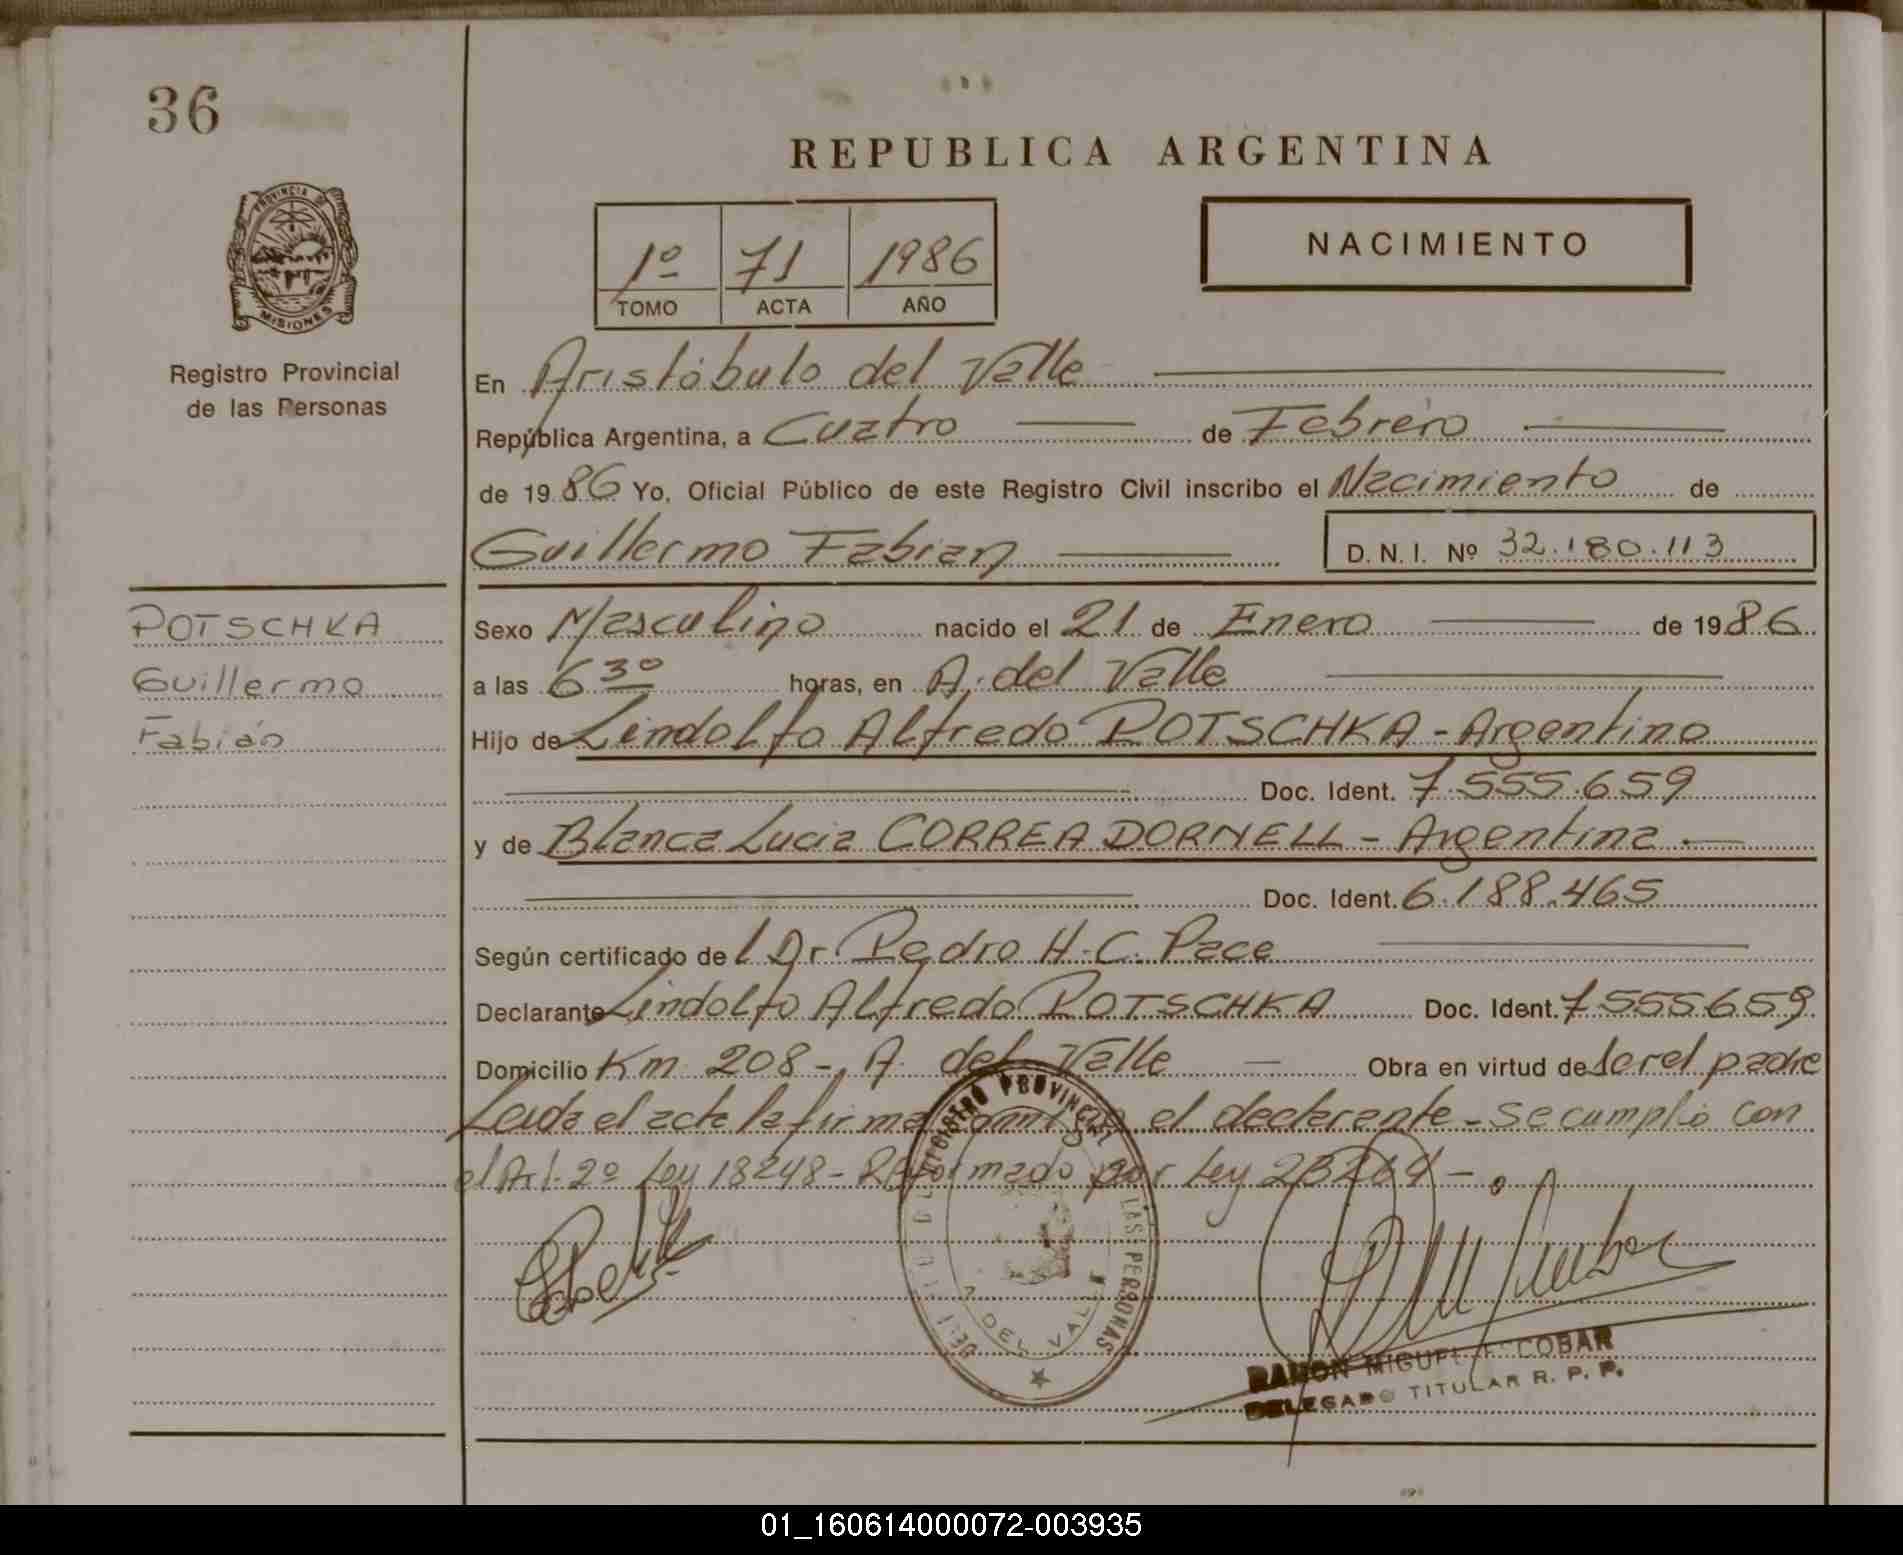 36
REPUBLICA ARGENTINA
PROVINCIA DE
MISIONES
1º 71 1986
TOMO ACTA AÑO
NACIMIENTO
Registro Provincial
de las Personas
En Aristóbulo del Valle
República Argentina, a Cuatro de Febrero
de 1986 Yo, Oficial Público de este Registro Civil inscribo el Nacimiento de
Guillermo Fabian D.N.I. Nº 32.180.113
POTSCHKA
Guillermo
Fabián
Sexo Masculino nacido el 21 de Enero de 1986
a las 6 30 horas, en A. del Valle
Hijo de Lindolfo Alfredo POTSCHKA - Argentino
Doc. Ident. 7.555.659
y de Blanca Lucia CORREA DORNELL - Argentina
Doc. Ident. 6.188.465
Según certificado de l Dr Pedro H. C. Pace
Declarante Lindolfo Alfredo POTSCHKA Doc. Ident. 7555659
Domicilio Km 208 - A. del Valle Obra en virtud de ser el padre
Leida el acta la firma conmigo el declarante - Se cumplió con
el Art. 2º Ley 18248 - Reformado por Ley 23264 -
REGISTRO PROVINCIAL DE LAS PERSONAS
DEL VALLE
RAMON MIGUEL ESCOBAR
DELEGADO TITULAR R. P. P.
01_160614000072-003935